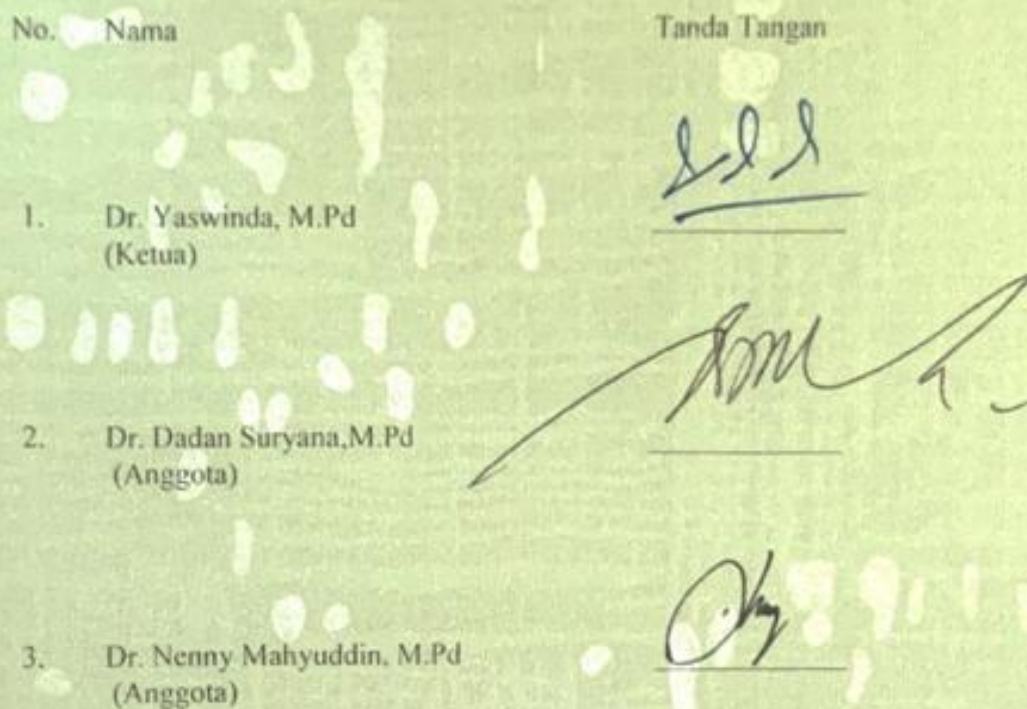 No. Nama Tanda Tangan
1. Dr. Yaswinda, M.Pd
(Ketua)
2. Dr. Dadan Suryana,M.Pd
(Anggota)
3. Dr. Nenny Mahyuddin, M.Pd
(Anggota)